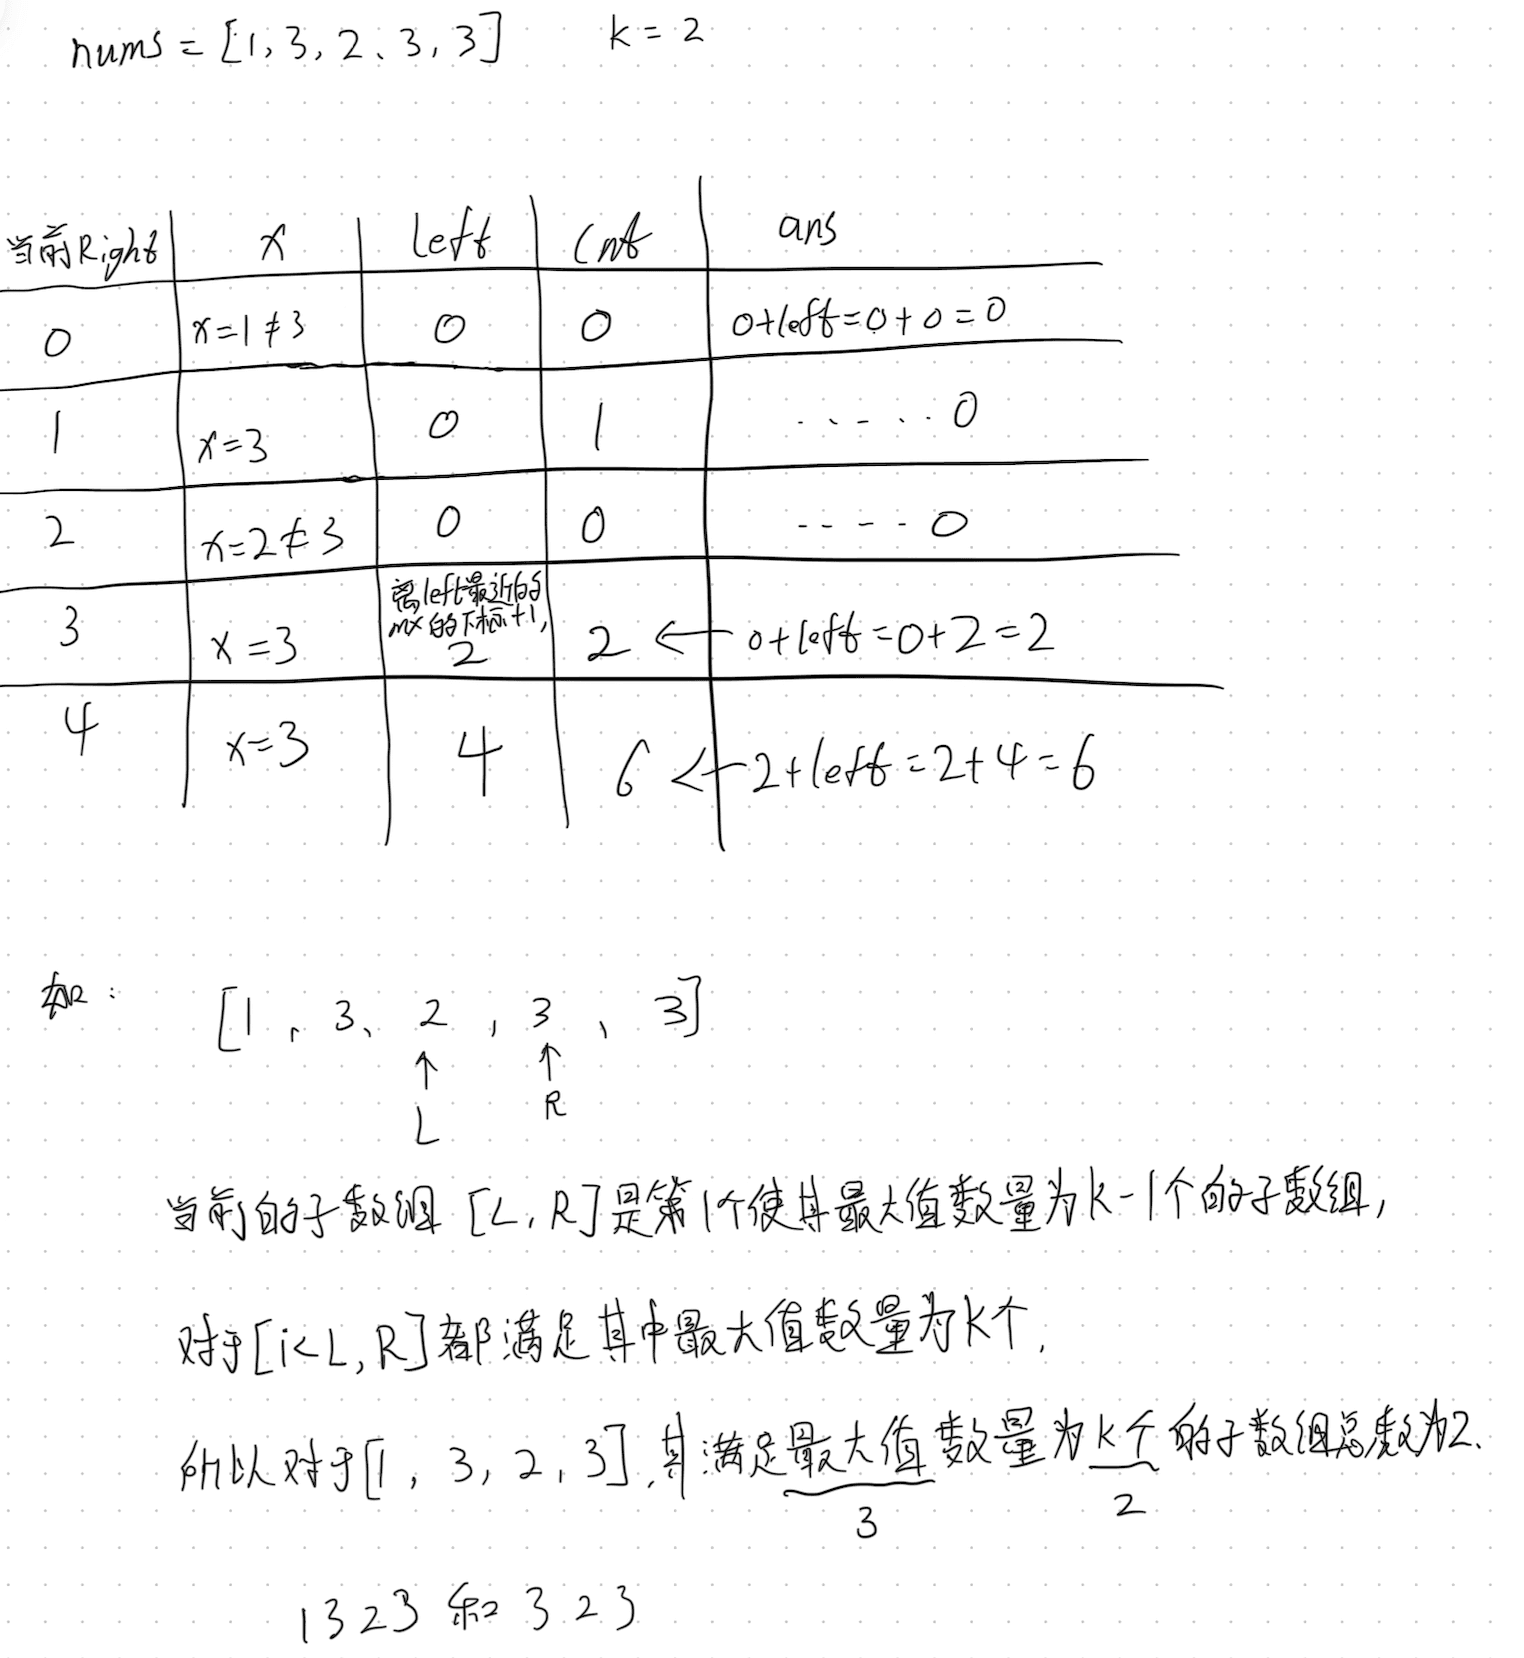 nums = [1, 3, 2、3, 3]  k = 2
当前Right  x  left  cnt  ans
0  x=1≠3  0  0  0+left=0+0=0
1  x=3  0  1  ......0
2  x=2≠3  0  0  ....0
3  x=3  离left最近的mx的下标+1, 2  2 ← 0+left=0+2=2
4  x=3  4  6 ← 2+left=2+4=6
如：  [1, 3、2, 3、3]
↑ ↑
L R
当前的子数组 [L, R]是第1个使其最大值数量为k-1个的子数组,
对于[i<L, R]都满足其中最大值数量为k个.
所以对于[1, 3, 2, 3].其满足最大值数量为k个的子数组总数为2.
3  2
1323 和 323